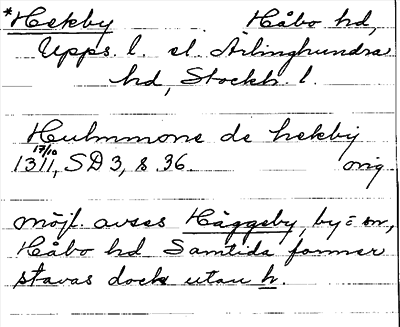 *Hekby Håbo hd,
Upps. l. el. Ärlinghundra
hd, Stockh. l.
Hulmmone de hekby
17/10
1311, SD 3, s. 36. orig.
möjl. avses Häggeby, by = sn,
Håbo hd Samtida former
stavas dock utan h.